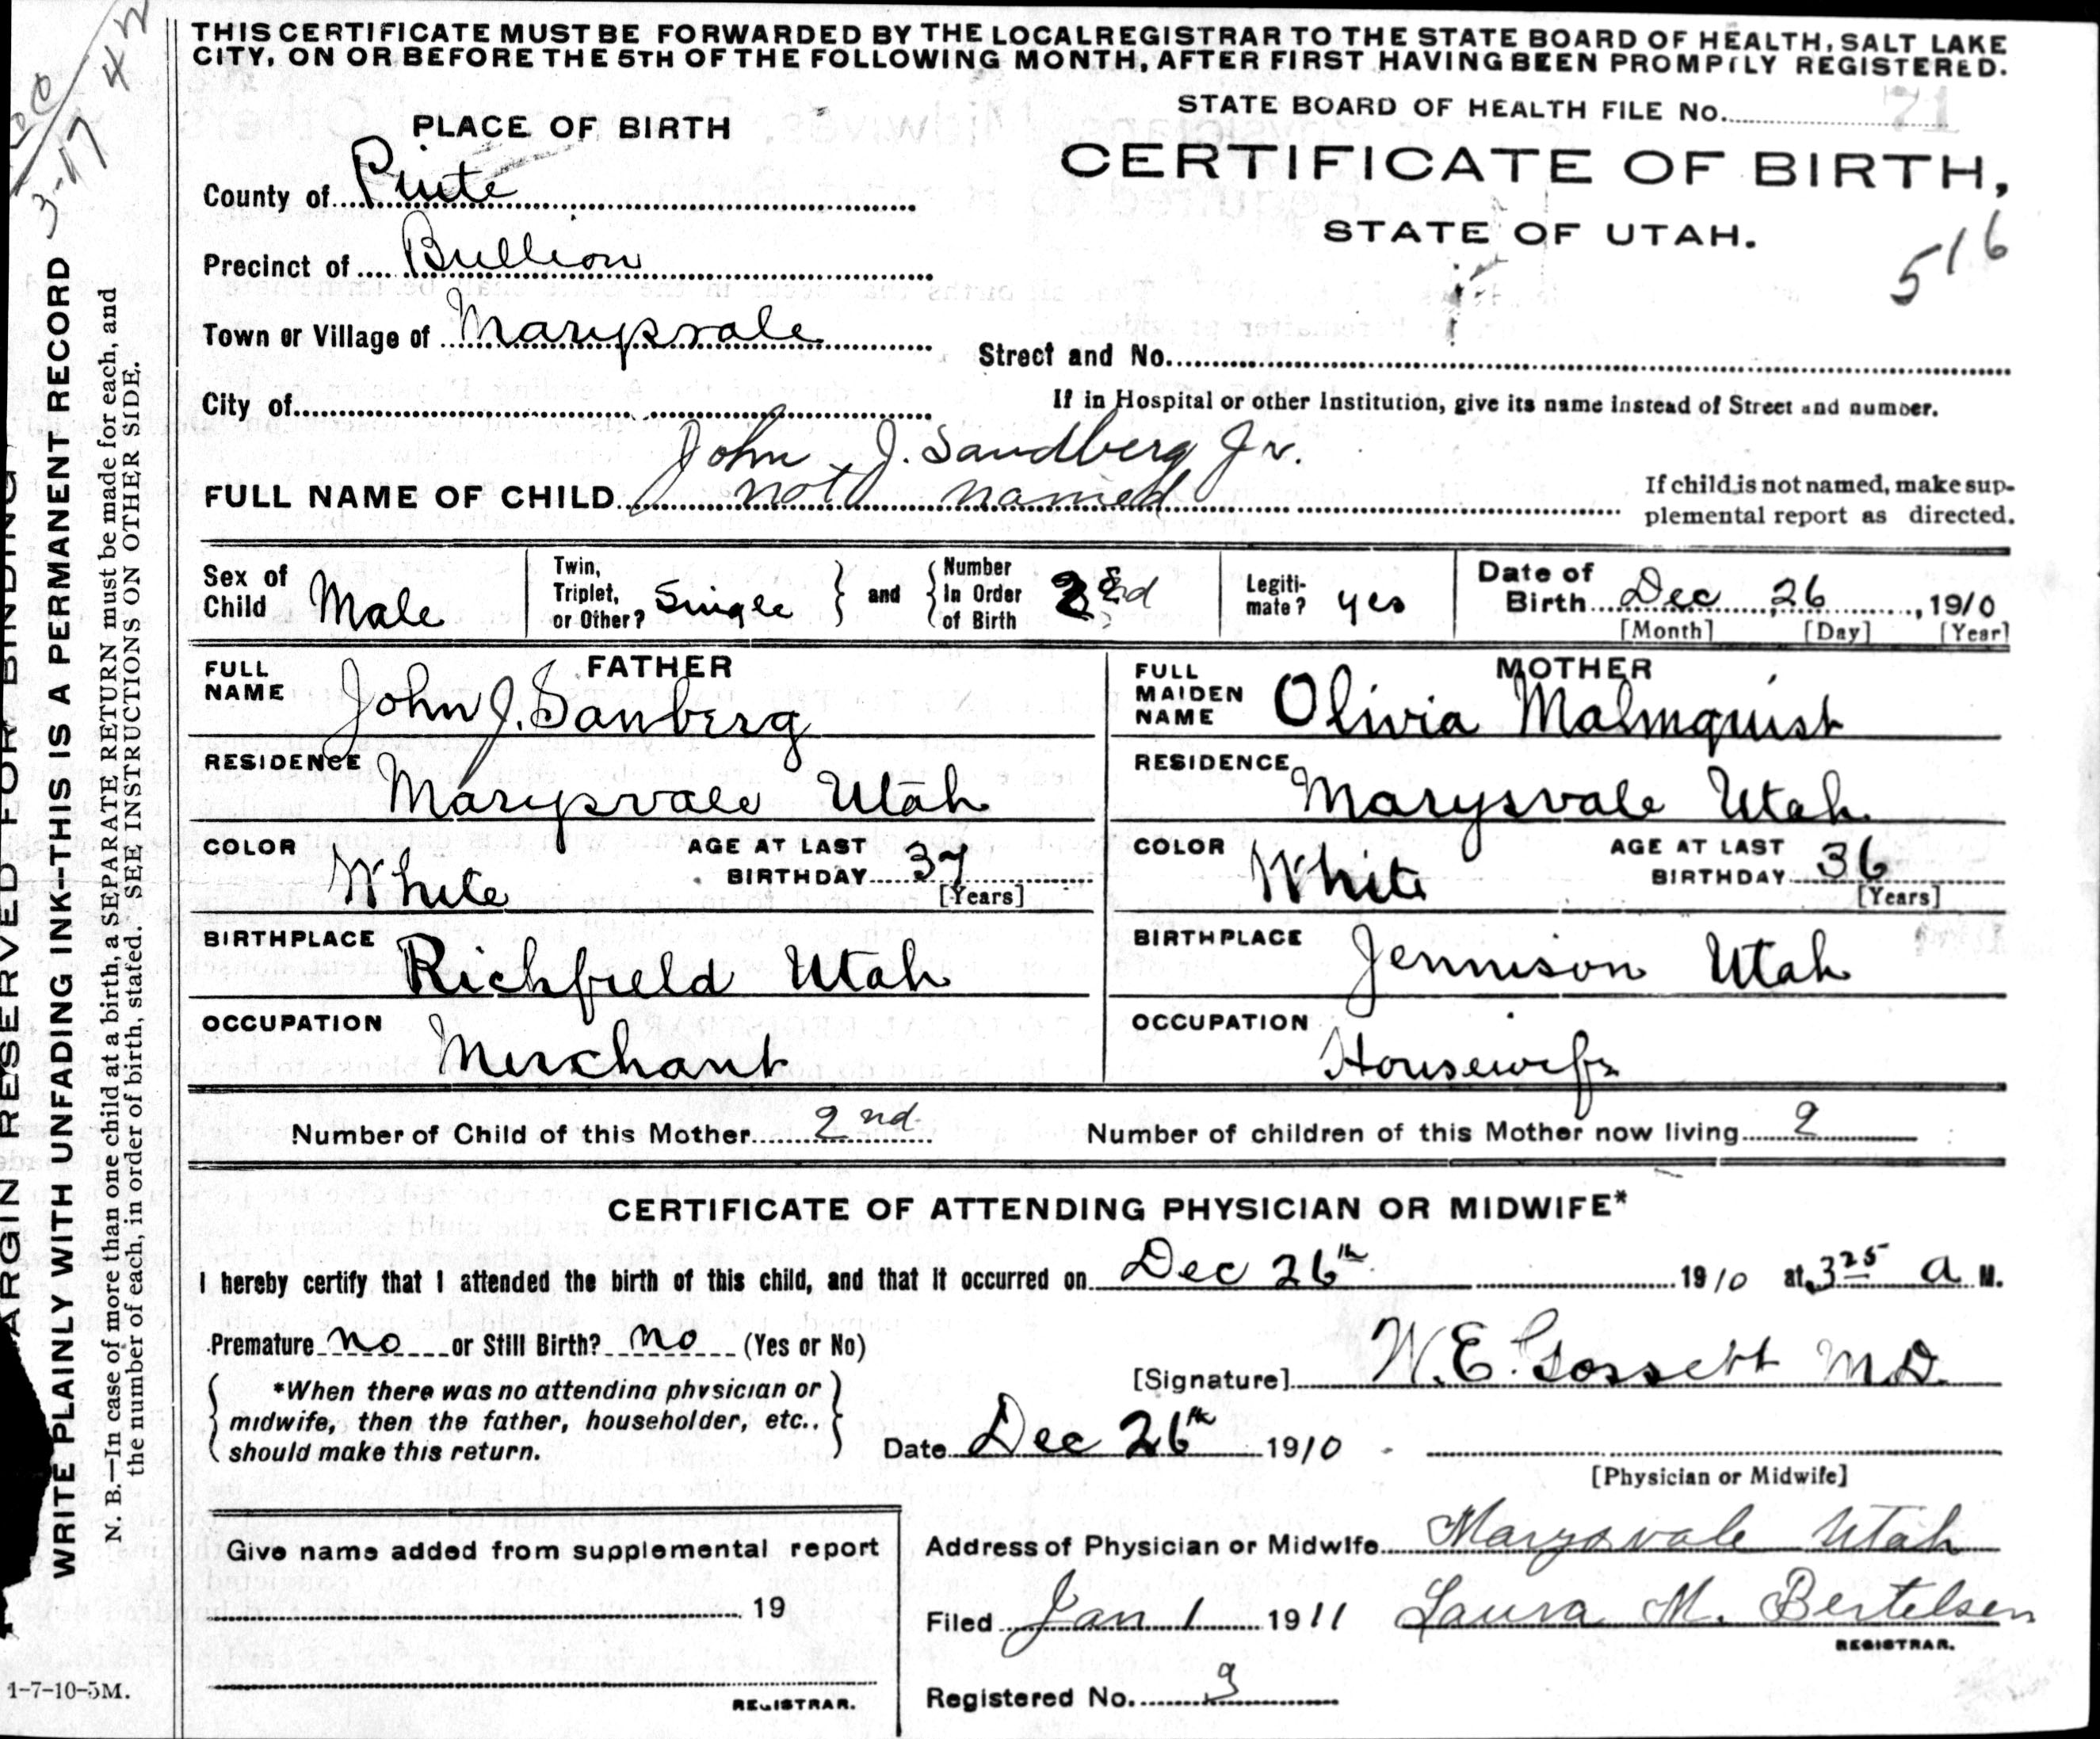 THIS CERTIFICATE MUST BE FORWARDED BY THE LOCAL REGISTRAR TO THE STATE BOARD OF HEALTH, SALT LAKE
CITY, ON OR BEFORE THE 5TH OF THE FOLLOWING MONTH, AFTER FIRST HAVING BEEN PROMPTLY REGISTERED.
STATE BOARD OF HEALTH FILE No. 71
PLACE OF BIRTH
CERTIFICATE OF BIRTH,
STATE OF UTAH.
516
County of Piute
Precinct of Bullion
Town or Village of Marysvale
Street and No.
City of
If in Hospital or other Institution, give its name instead of Street and number.
John J. Sandberg Jr.
FULL NAME OF CHILD not named
If child is not named, make sup-
plemental report as directed.
Sex of Child Male
Twin, Triplet, or Other? Single
and Number In Order of Birth 2nd
Legiti-mate? yes
Date of Birth Dec 26, 1910
[Month] [Day] [Year]
FATHER
FULL NAME John J. Sanberg
RESIDENCE Marysvale Utah
COLOR White AGE AT LAST BIRTHDAY 37 [Years]
BIRTHPLACE Richfield Utah
OCCUPATION Merchant
MOTHER
FULL MAIDEN NAME Olivia Malmquist
RESIDENCE Marysvale Utah
COLOR White AGE AT LAST BIRTHDAY 36 [Years]
BIRTHPLACE Jennison Utah
OCCUPATION Housewife
Number of Child of this Mother 2nd
Number of children of this Mother now living 2
CERTIFICATE OF ATTENDING PHYSICIAN OR MIDWIFE*
I hereby certify that I attended the birth of this child, and that it occurred on Dec 26th 1910 at 3 25 a M.
Premature no or Still Birth? no (Yes or No)
*When there was no attending physician or
midwife, then the father, householder, etc.,
should make this return.
[Signature] W. E. Gossett M.D.
Date Dec 26th 1910
[Physician or Midwife]
Give name added from supplemental report
19
REGISTRAR.
Address of Physician or Midwife Marysvale Utah
Filed Jan 1 1911 Laura M. Bertelsen
REGISTRAR.
Registered No. 9
MARGIN RESERVED FOR BINDING
WRITE PLAINLY WITH UNFADING INK--THIS IS A PERMANENT RECORD
N. B.—In case of more than one child at a birth, a SEPARATE RETURN must be made for each, and
the number of each, in order of birth, stated. SEE INSTRUCTIONS ON OTHER SIDE.
3-17
1-7-10-5M.